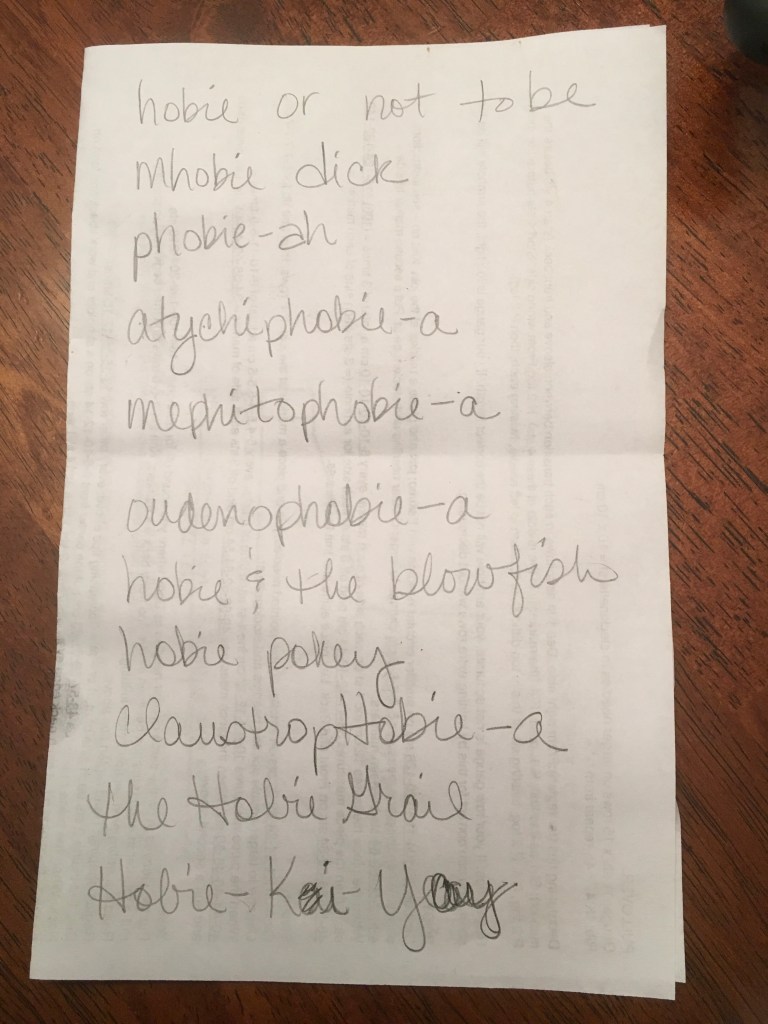 hobie or not to be
mhobie dick
phobie-ah
atychiphobie-a
mephitophobie-a
oudenophobie-a
hobie & the blowfish
hobie pokey
claustropHobie-a
the Hobie Grail
Hobie-Kai-Yay